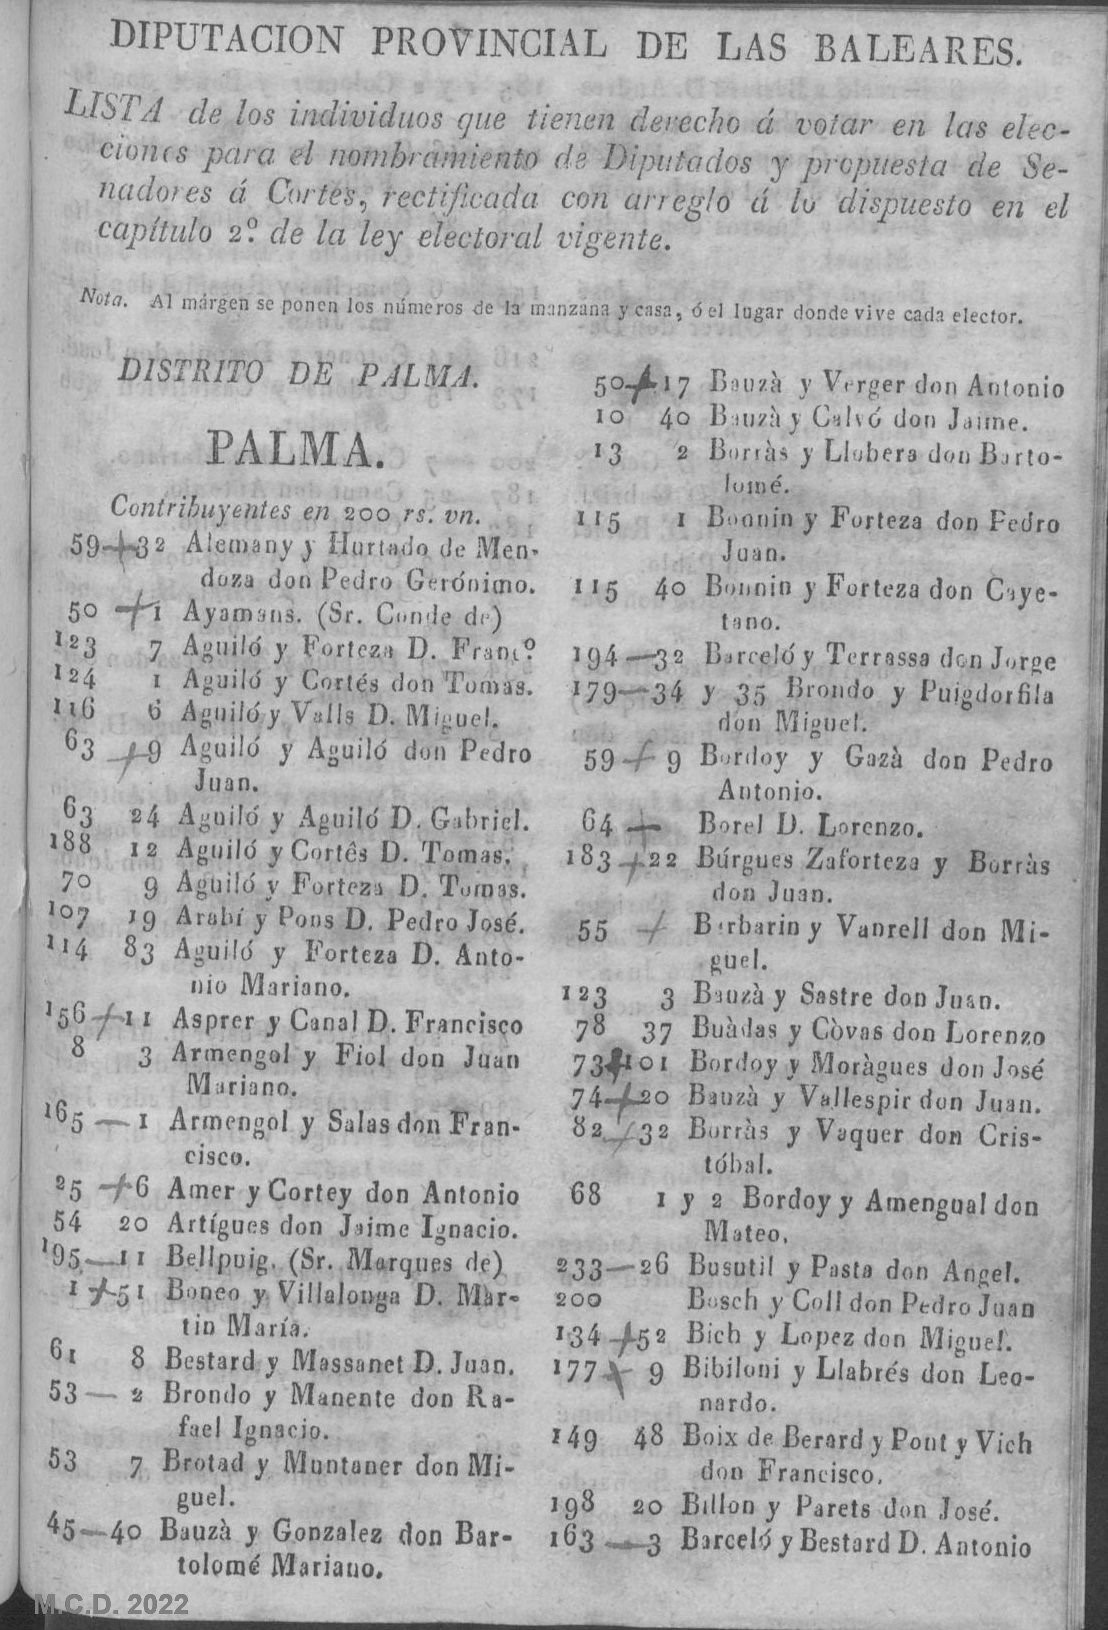 DIPUTACION PROVINCIAL DE LAS BALEARES.
LISTA de los individuos que tienen derecho á votar en las elec-
ciones para el nombramiento de Diputados y propuesta de Se-
nadores á Cortes, rectificada con arreglo á lo dispuesto en el
capítulo 2.º de la ley electoral vigente.
Nota. Al márgen se ponen los números de la manzana y casa, ó el lugar donde vive cada elector.
DISTRITO DE PALMA.
PALMA.
Contribuyentes en 200 rs. vn.
59 32 Alemany y Hurtado de Men-
doza don Pedro Gerónimo.
50 1 Ayamans. (Sr. Conde de)
123 7 Aguiló y Forteza D. Franc.º
124 1 Aguiló y Cortés don Tomas.
116 6 Aguiló y Valls D. Miguel.
63 9 Aguiló y Aguiló don Pedro
Juan.
63 24 Aguiló y Aguiló D. Gabriel.
188 12 Aguiló y Cortês D. Tomas.
70 9 Aguiló y Forteza D. Tomas.
107 19 Arabí y Pons D. Pedro José.
114 83 Aguiló y Forteza D. Anto-
nio Mariano.
156 11 Asprer y Canal D. Francisco
8 3 Armengol y Fiol don Juan
Mariano.
165 1 Armengol y Salas don Fran-
cisco.
25 6 Amer y Cortey don Antonio
54 20 Artígues don Jaime Ignacio.
195 11 Bellpuig. (Sr. Marques de)
1 51 Boneo y Villalonga D. Mar-
tin María.
61 8 Bestard y Massanet D. Juan.
53 2 Brondo y Manente don Ra-
fael Ignacio.
53 7 Brotad y Muntaner don Mi-
guel.
45 40 Bauzà y Gonzalez don Bar-
tolomé Mariano.
50 17 Bauzà y Verger don Antonio
10 40 Bauzà y Calvó don Jaime.
13 2 Borràs y Llobera don Barto-
lomé.
115 1 Bonnin y Forteza don Pedro
Juan.
115 40 Bonnin y Forteza don Caye-
tano.
194 32 Barceló y Terrassa don Jorge
179 34 y 35 Brondo y Puigdorfila
don Miguel.
59 9 Bordoy y Gazà don Pedro
Antonio.
64 Borel D. Lorenzo.
183 22 Búrgues Zaforteza y Borràs
don Juan.
55 Barbarin y Vanrell don Mi-
guel.
123 3 Bauzà y Sastre don Juan.
78 37 Buàdas y Còvas don Lorenzo
73 101 Bordoy y Moràgues don José
74 20 Bauzà y Vallespir don Juan.
82 32 Borràs y Vaquer don Cris-
tóbal.
68 1 y 2 Bordoy y Amengual don
Mateo.
233 26 Busutil y Pasta don Angel.
200 Bosch y Coll don Pedro Juan
134 52 Bich y Lopez don Miguel.
177 9 Bibiloni y Llabrés don Leo-
nardo.
149 48 Boix de Berard y Pont y Vich
don Francisco.
198 20 Billon y Parets don José.
163 3 Barceló y Bestard D. Antonio
M.C.D. 2022